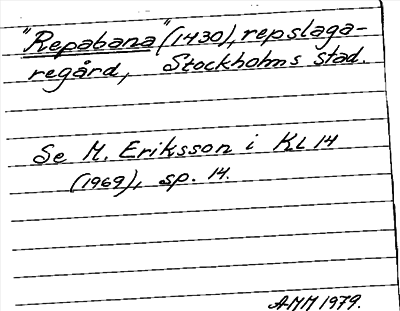 "Repabana" (1430), repslaga-
regård, Stockholms stad.
Se M. Eriksson i KL 14
(1969), sp. 14.
AMM 1979.